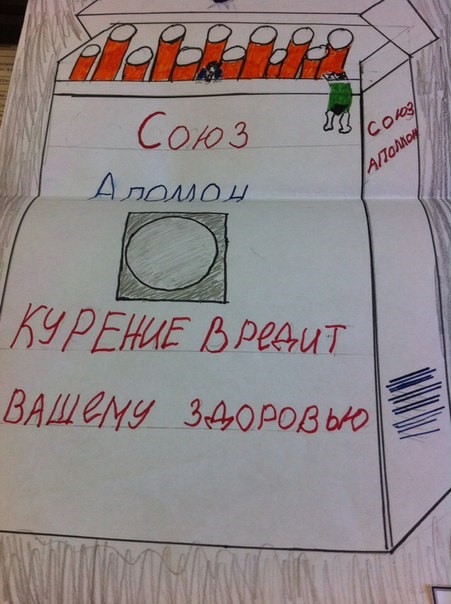 Союз
Аполлон
СОЮЗ
АПОЛЛОН
КУРЕНИЕ ВРеДИТ
ВАШеМУ ЗДОРОВЬЮ